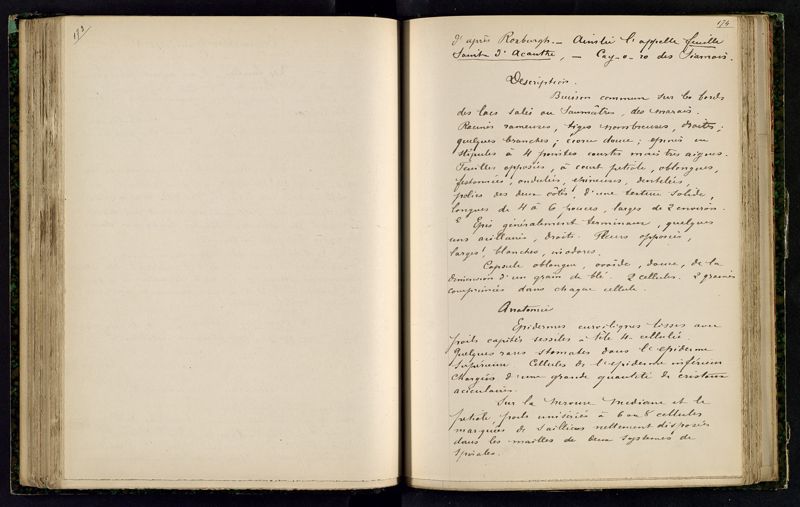 173
174
d'après Roxburgh. — Ainslie l'appelle feuille
Saint d'Acanthe, — Cay-o-ro des Siamois.
Description.
Buisson commun sur les bords
des lacs salés ou saumâtres, des marais.
Racines rameuses, tiges nombreuses, droites;
quelques branches; écorce douce; épines en
stipules à 4 pointes courtes mais très aigues.
Feuilles opposées, à court petiole, oblongues,
festonnées, ondulées, épineuses, dentelées,
polies des deux côtés, d'une texture solide,
longues de 4 à 6 pouces, larges de 2 environ.
Epis généralement terminaux, quelques
uns axillaires, droits. Fleurs opposées,
larges, blanches, inodores.
Capsule oblongue, ovoïde, douce, de la
dimension d'un grain de blé. 2 cellules. 2 graines
comprimées dans chaque cellule.
Anatomie
Epidermes curvilignes lisses avec
poils capités sessiles à tête 4 cellulée.
Quelques rares stomates dans l'épiderme
supérieur. Cellules de l'épiderme inférieur
chargées d'une grande quantité de cristaux
aciculaires.
Sur la nervure médiane et le
petiole, poils unisériés à 6 ou 8 cellules
marquées de saillies nettement disposées
dans les mailles de deux systèmes de
spirales.